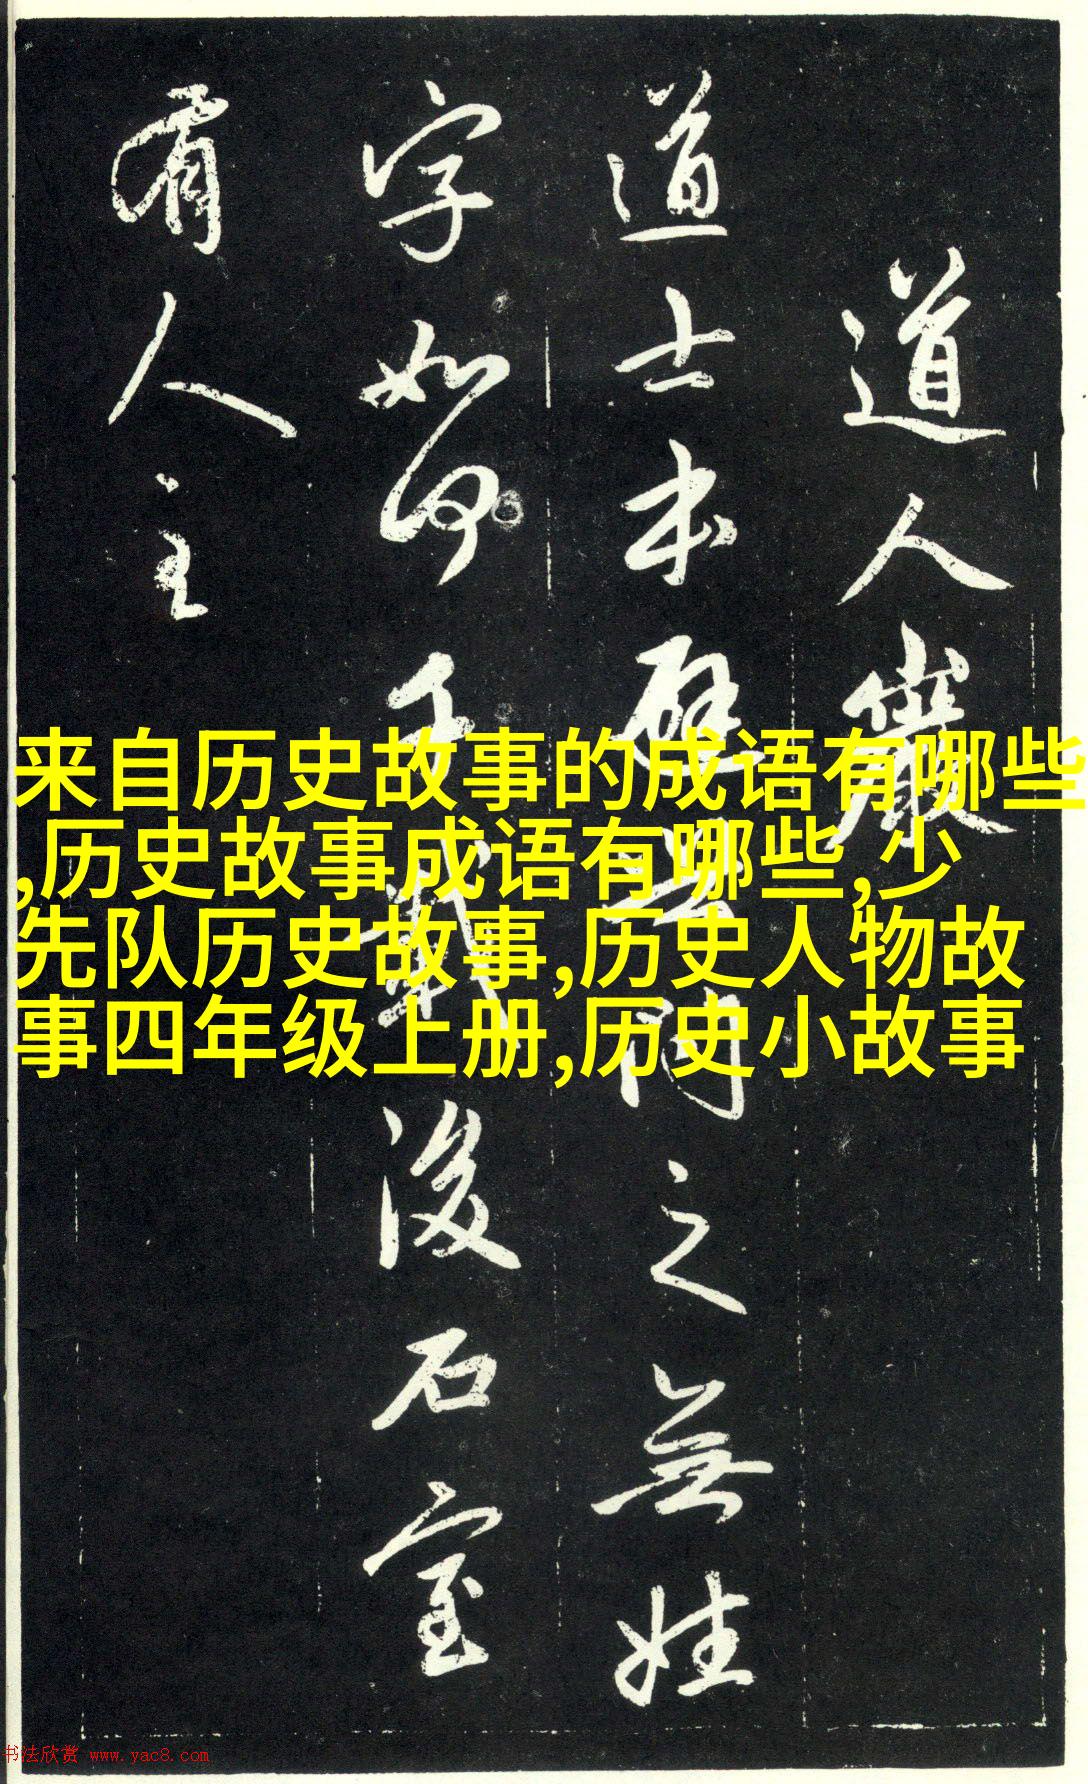 道人巖
道士本避世問之無姓
字如何千載後石室
有人至
来自历史故事的成语有哪些
,历史故事成语有哪些,少
先队历史故事,历史人物故
事四年级上册,历史小故事
书法欣赏 www.yac8.com